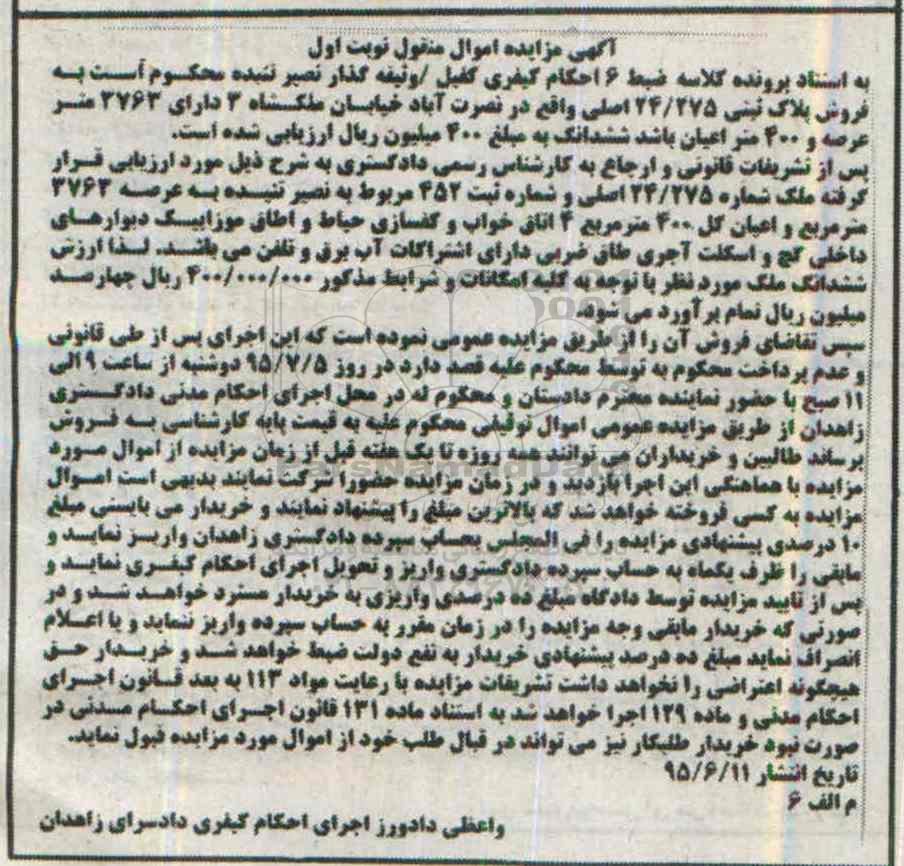 آگهی مزایده اموال منقول نوبت اول
به استناد پرونده کلاسه ضبط ۶ احکام کیفری کفیل /وثیقه گذار نصیر تنیده محکوم است به
فروش پلاک ثبتی ۲۴/۲۷۵ اصلی واقع در نصرت آباد خیابان ملکشاه ۳ دارای ۳۷۶۳ متر
عرصه و ۴۰۰ متر اعیان باشد ششدانگ به مبلغ ۴۰۰ میلیون ریال ارزیابی شده است.
پس از تشریفات قانونی و ارجاع به کارشناس رسمی دادگستری به شرح ذیل مورد ارزیابی قرار
گرفته ملک شماره ۲۴/۲۷۵ اصلی و شماره ثبت ۴۵۲ مربوط به نصیر تنیده به عرصه ۳۷۶۳
مترمربع و اعیان کل ۴۰۰ مترمربع ۴ اتاق خواب و کفسازی حیاط و اطاق موزاییک دیوارهای
داخلی گچ و اسکلت آجری طاق ضربی دارای اشتراکات آب برق و تلفن می باشد. لذا ارزش
ششدانگ ملک مورد نظر با توجه به کلیه امکانات و شرایط مذکور ۴۰۰/۰۰۰/۰۰۰ ریال چهارصد
میلیون ریال تمام برآورد می شود.
سپس تقاضای فروش آن را از طریق مزایده عمومی نموده است که این اجرای پس از طی قانونی
و عدم پرداخت محکوم به توسط محکوم علیه قصد دارد در روز ۹۵/۷/۵ دوشنبه از ساعت ۹ الی
۱۱ صبح با حضور نماینده محترم دادستان و محکوم له در محل اجرای احکام مدنی دادگستری
زاهدان از طریق مزایده عمومی اموال توقیفی محکوم علیه به قیمت پایه کارشناسی به فروش
برساند طالبین و خریداران می توانند همه روزه تا یک هفته قبل از زمان مزایده از اموال مورد
مزایده با هماهنگی این اجرا بازدید و در زمان مزایده حضورا شرکت نمایند بدیهی است اموال
مزایده به کسی فروخته خواهد شد که بالاترین مبلغ را پیشنهاد نمایند و خریدار می بایستی مبلغ
۱۰ درصدی پیشنهادی مزایده را فی المجلس بحساب سپرده دادگستری زاهدان واریز نماید و
مابقی را ظرف یکماه به حساب سپرده دادگستری واریز و تحویل اجرای احکام کیفری نماید و
پس از تایید مزایده توسط دادگاه مبلغ ده درصدی واریزی به خریدار مسترد خواهد شد و در
صورتی که خریدار مابقی وجه مزایده را در زمان مقرر به حساب سپرده واریز ننماید و یا اعلام
انصراف نماید مبلغ ده درصد پیشنهادی خریدار به نفع دولت ضبط خواهد شد و خریدار حق
هیچگونه اعتراضی را نخواهد داشت تشریفات مزایده با رعایت مواد ۱۱۳ به بعد قانون اجرای
احکام مدنی و ماده ۱۲۹ اجرا خواهد شد به استناد ماده ۱۳۱ قانون اجرای احکام مدنی در
صورت نبود خریدار طلبکار نیز می تواند در قبال طلب خود از اموال مورد مزایده قبول نماید.
تاریخ انتشار ۹۵/۶/۱۱
م الف ۶
واعظی دادورز اجرای احکام کیفری دادسرای زاهدان
ParsNamadData